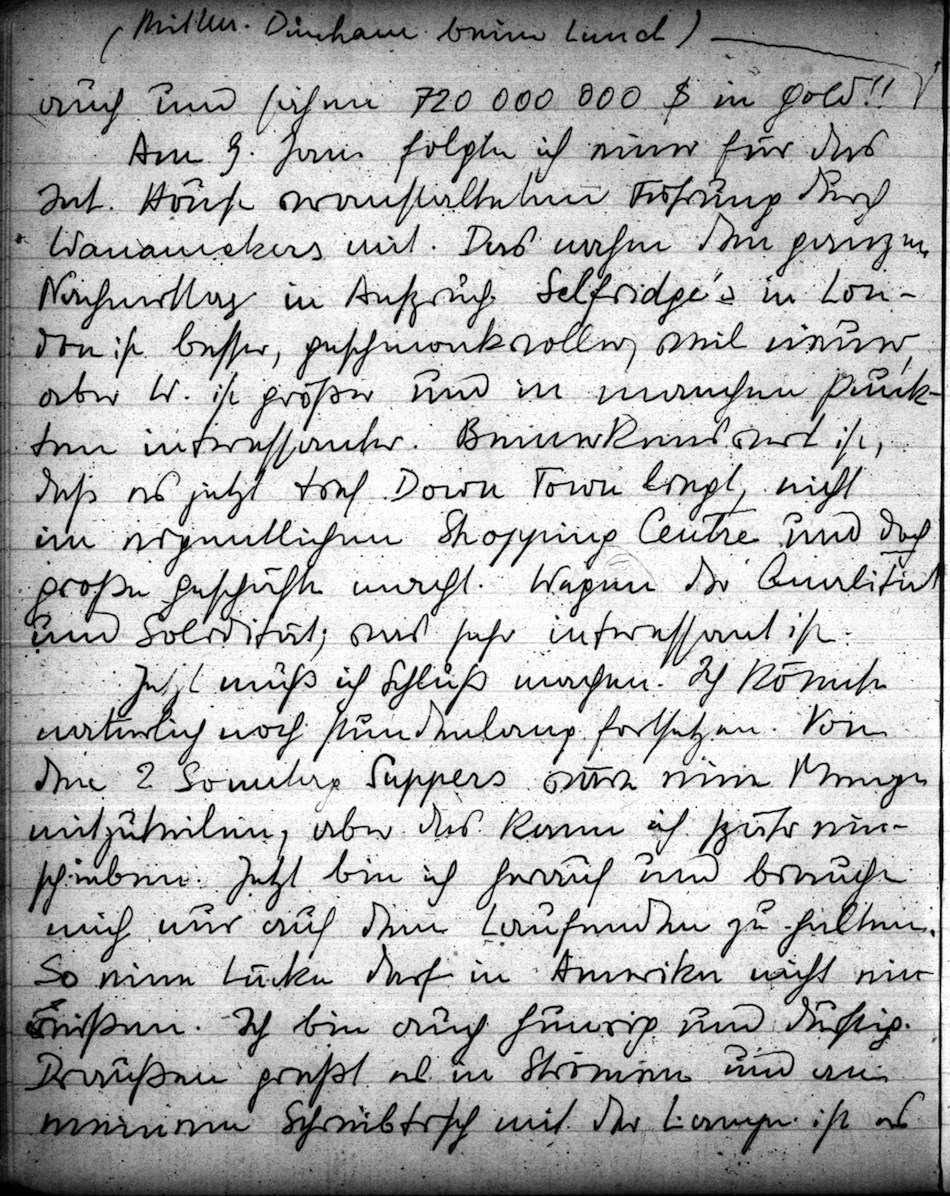 (Miller. Dinham beim Lunch)
auch und sahen 720 000 000 $ in Gold!!
Am 9. Jan. folgte ich einer für das
Int. House veranstalteten Führung durch
Wanamekers mit. Das nahm den ganzen
Nachmittag in Anspruch. Selfridge's in Lon-
don ist besser, geschmackvoller, weil neuer,
aber W. ist größer und in manchen Punk-
ten interessanter. Bemerkenswert ist,
daß es jetzt tief Down Town liegt, nicht
im eigentlichen Shopping Centre und doch
große Geschäfte macht. Wegen der Qualität
und Solidität, was sehr interessant ist.
Jetzt muß ich Schluß machen. Ich könnte
natürlich noch stundenlang fortsetzen. Von
den 2 Sonntag Suppers wäre eine Menge
mitzuteilen, aber das kann ich später ein-
schieben. Jetzt bin ich herauf und brauche
mich nur auf dem Laufenden zu halten.
So eine Lücke darf in Amerika nicht ein
reißen. Ich bin auch hungrig und durstig.
Draußen gießt es in Strömen und an
meinem Schreibtisch mit der Lampe ist es